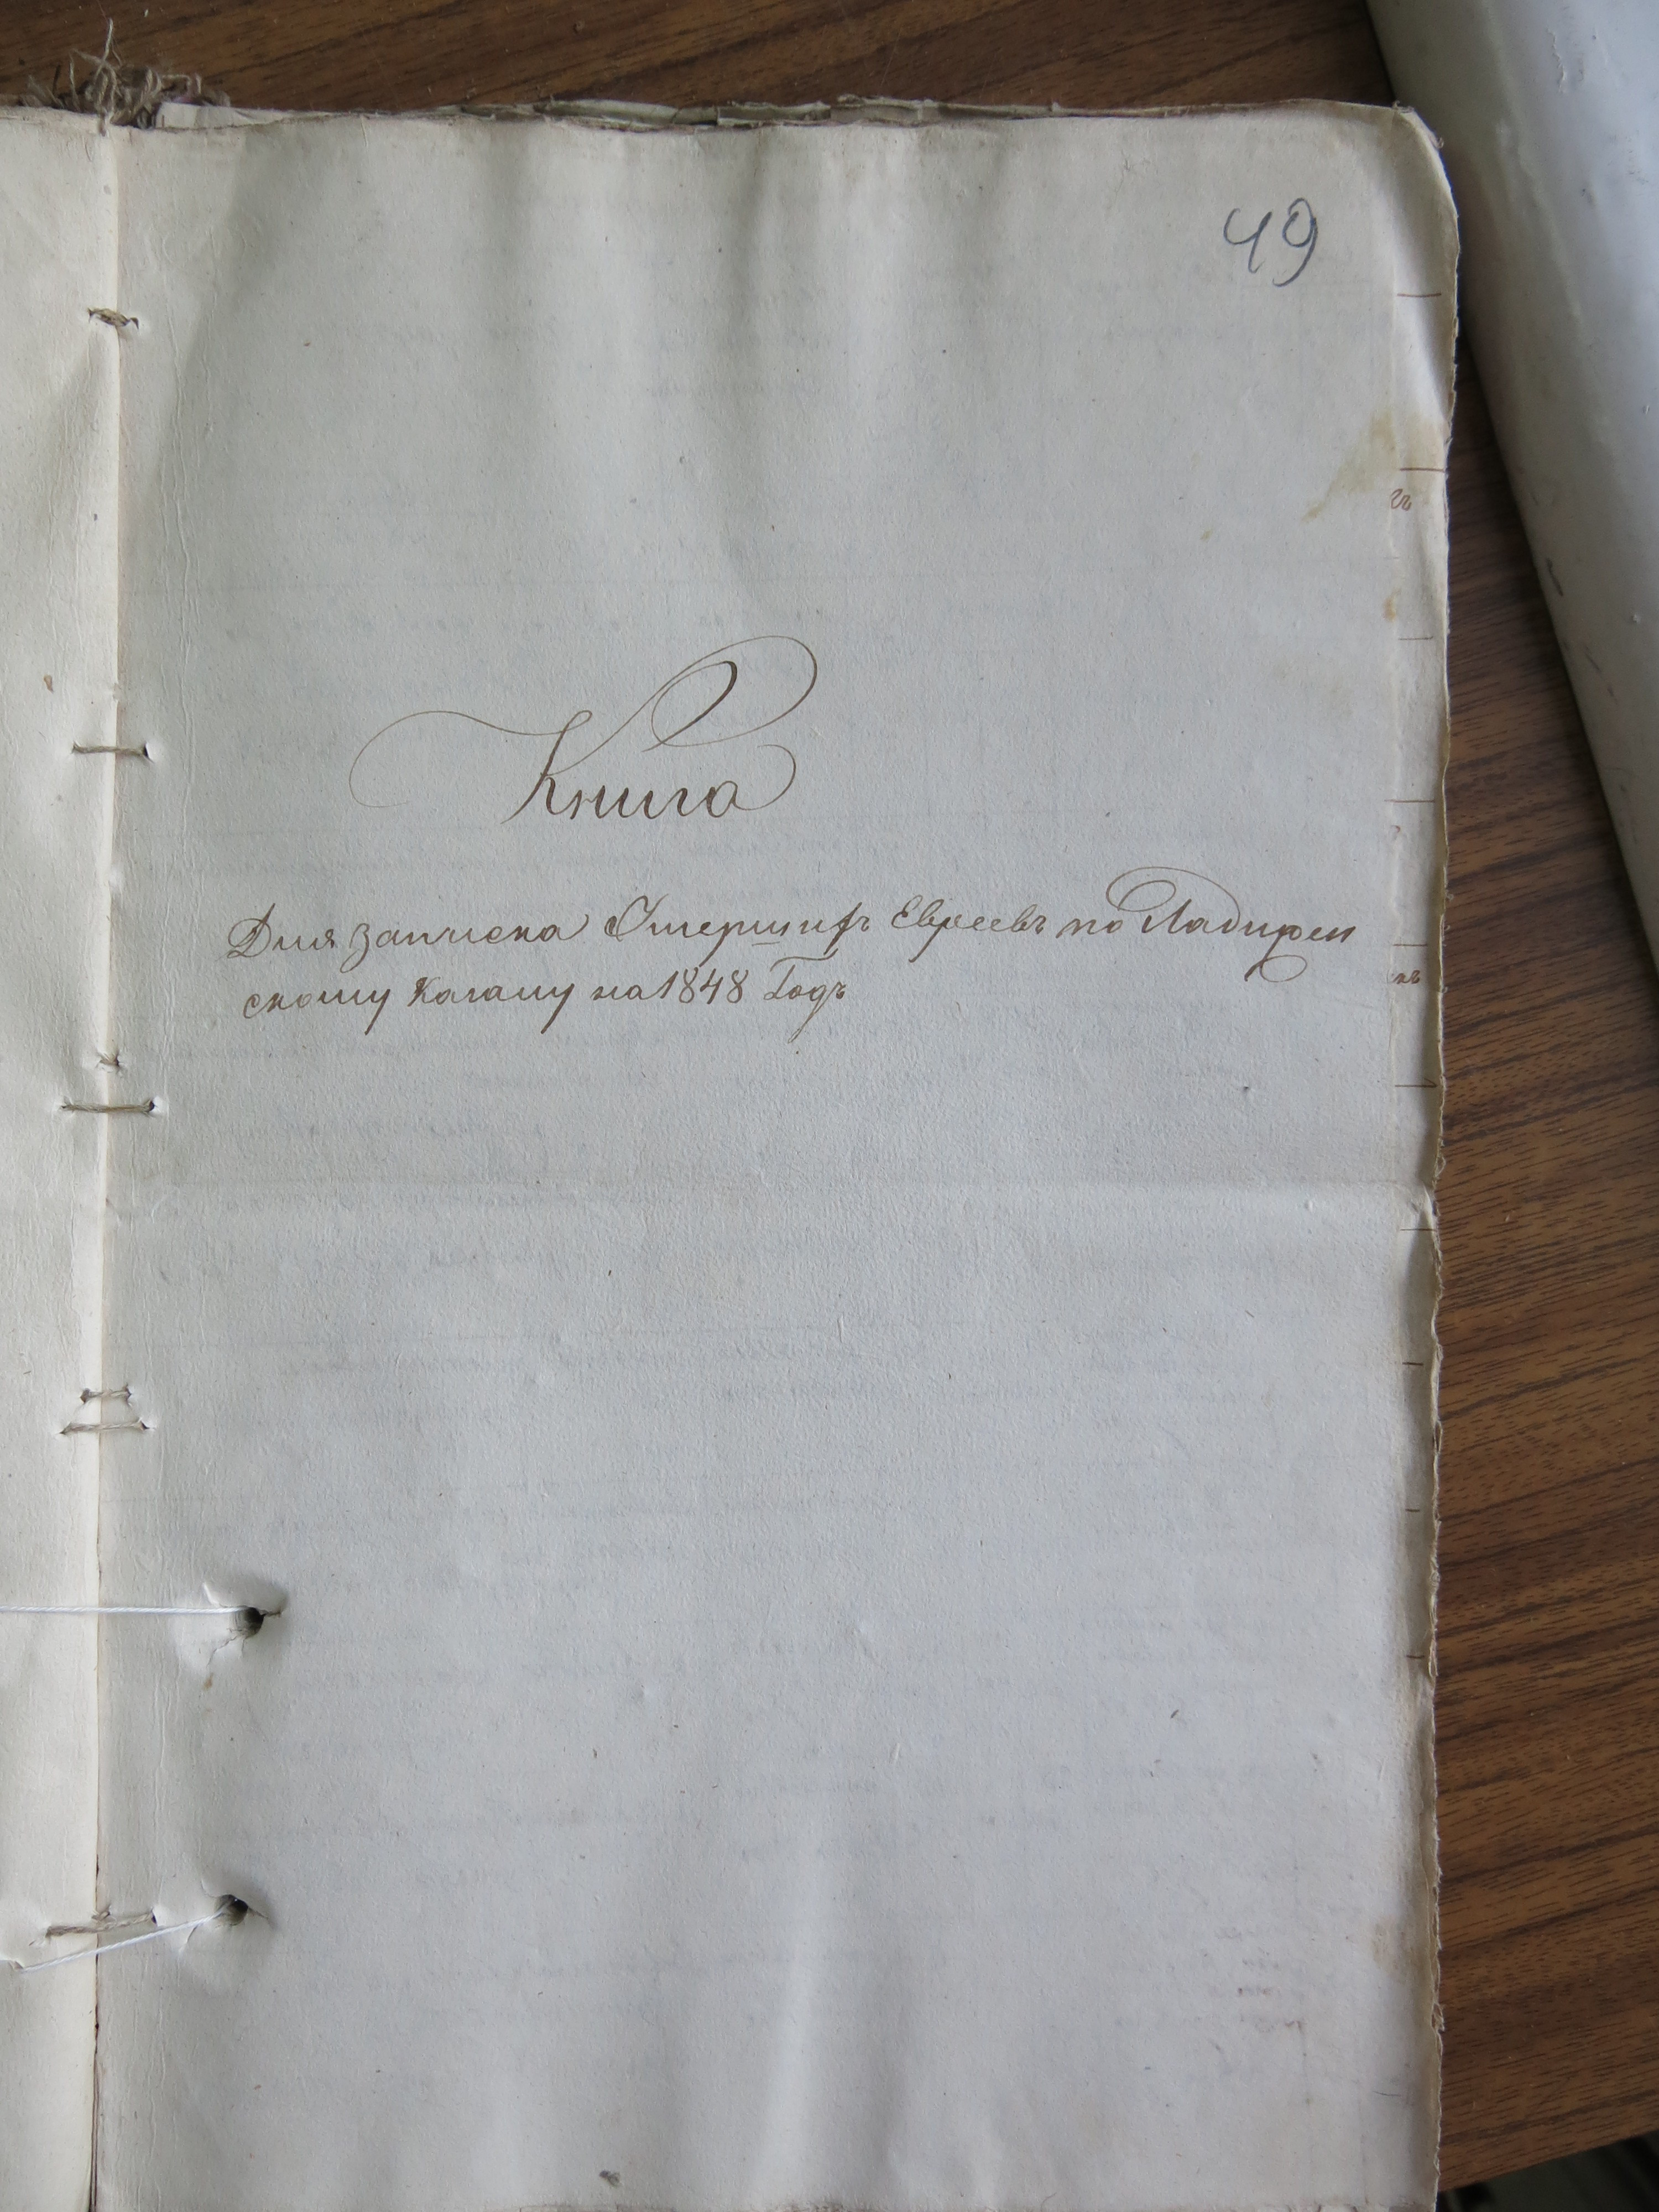 49
Книга
Для записка Умершихъ Евреевъ по Ладыжен
скому Кагалу на 1848 Годъ